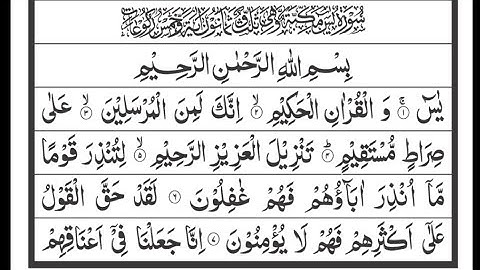 سُوْرَةُ يٰسٓ مَكِّيَّةٌ وَّهِيَ ثَلٰثٌ وَّثَمَانُوْنَ اٰيَةً وَّخَمْسُ رُكُوْعَاتٍ
بِسْمِ اللّٰهِ الرَّحْمٰنِ الرَّحِيْمِ
يٰسٓ ۚ‏﴿۱﴾ وَ الْقُرْاٰنِ الْحَكِيْمِ ۙ‏﴿۲﴾ اِنَّكَ لَمِنَ الْمُرْسَلِيْنَ ۙ‏﴿۳﴾ عَلٰى
صِرَاطٍ مُّسْتَقِيْمٍ ؕ‏﴿۴﴾ تَنْزِيْلَ الْعَزِيْزِ الرَّحِيْمِ ۙ‏﴿۵﴾ لِتُنْذِرَ قَوْمًا
مَّاۤ اُنْذِرَ اٰبَآؤُهُمْ فَهُمْ غٰفِلُوْنَ ﴿۶﴾ لَقَدْ حَقَّ الْقَوْلُ
عَلٰٓى اَكْثَرِهِمْ فَهُمْ لَا يُؤْمِنُوْنَ ﴿۷﴾ اِنَّا جَعَلْنَا فِيْۤ اَعْنَاقِهِمْ